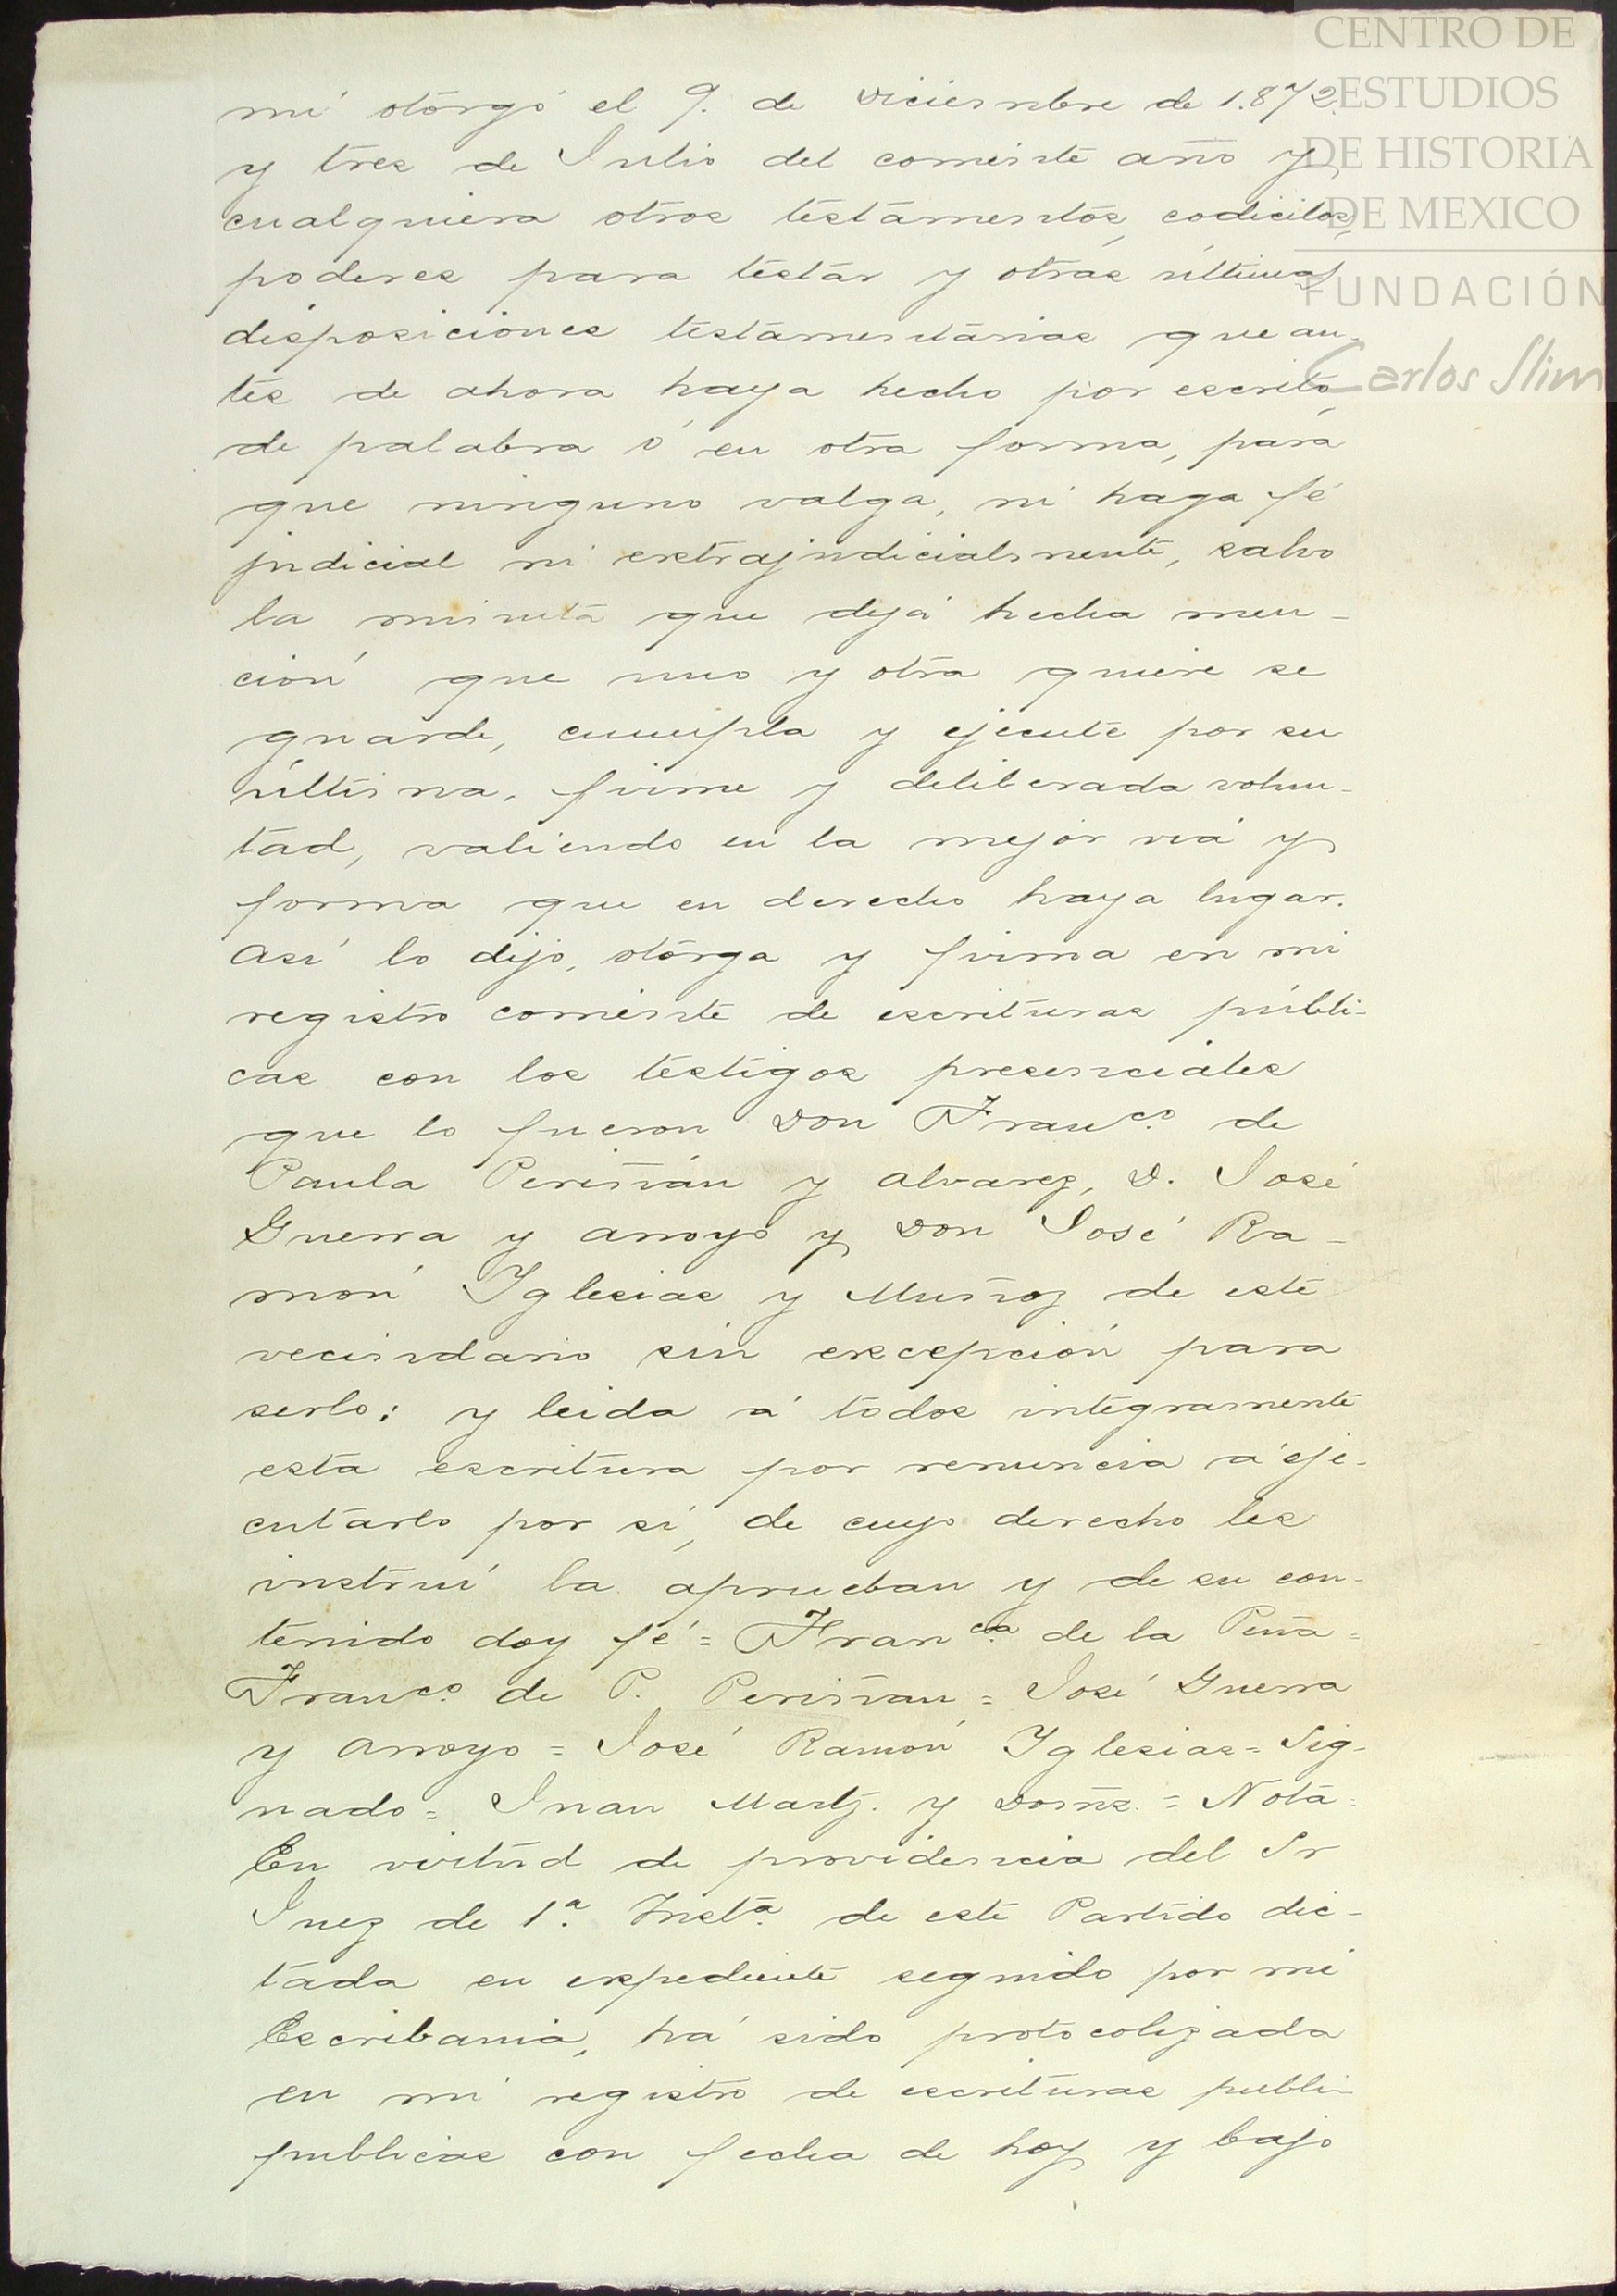 CENTRO DE
ESTUDIOS
DE HISTORIA
DE MEXICO
FUNDACIÓN
Carlos Slim
mí otorgó el 9. de Diciembre de 1.872.
y tres de Julio del corriente año y
cualquiera otros testamentos, codicilos,
poderes para testar y otras últimas
disposiciones testamentarias que an-
tes de ahora haya hecho por escrito,
de palabra ó en otra forma, para
que ninguno valga, ni haga fé
judicial ni extrajudicialmente, salvo
la minuta que dejá hecha men-
ción que uno y otra quiere se
guarde, cumpla y ejecute por su
última, firme y deliberada volun-
tad, valiendo en la mejor via y
forma que en derecho haya lugar.
Así lo dijo, otorga y firma en mi
registro corriente de escrituras públi-
cas con los testigos presenciales
que lo fueron Don Franco. de
Paula Periñán y Alvarez, D. José
Guerra y Arroyo y Don José Ra-
món Iglesias y Muñoz de este
vecindario sin excepción para
serlo; y leida á todos integramente
esta escritura por renuncia á eje-
cutarlo por sí, de cuyo derecho les
instruí la aprueban y de su con-
tenido doy fé = Franca. de la Peña =
Franco. de P. Periñan = José Guerra
y Arroyo = José Ramón Iglesias = Sig-
nado = Juan Martz. y Domz. = Nota =
En virtud de providencia del Sr
Juez de 1ª. Insta. de este Partido dic-
tada en expediente seguido por mi
Escribania, há sido protocolizada
en mi registro de escrituras publi-
publicas con fecha de hoy y bajo